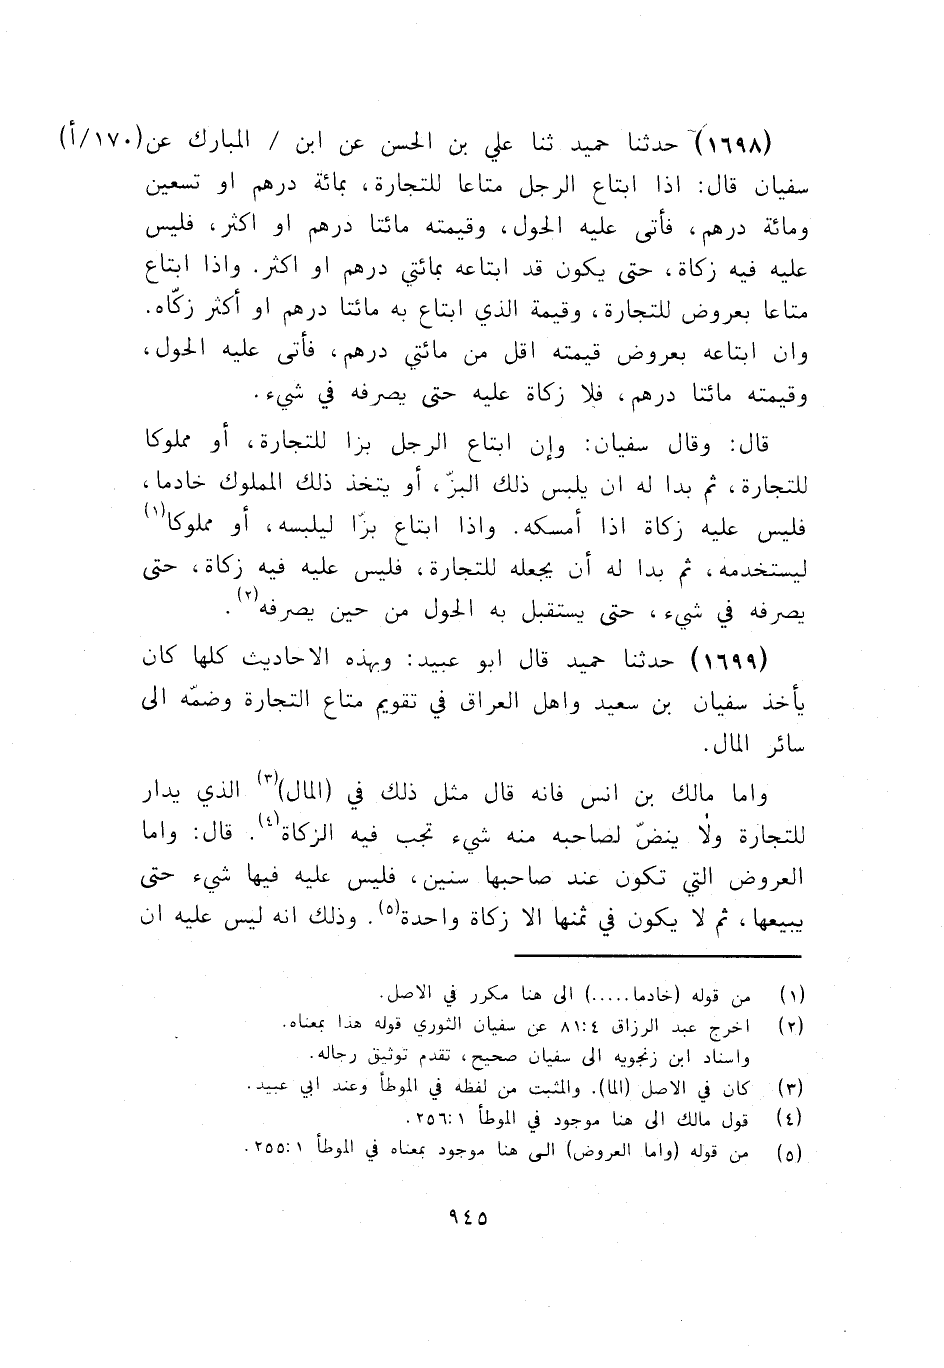 (١٦٩٨) حدثنا حميد ثنا علي بن الحسن عن ابن / المبارك عن (١٧٠/أ)
سفيان قال: اذا ابتاع الرجل متاعا للتجارة، بمائة درهم او تسعين
ومائة درهم، فأتى عليه الحول، وقيمته مائتا درهم او اكثر، فليس
عليه فيه زكاة، حتى يكون قد ابتاعه بمائتي درهم او اكثر. واذا ابتاع
متاعا بعروض للتجارة، وقيمة الذي ابتاع به مائتا درهم او أكثر زكّاه.
وان ابتاعه بعروض قيمته اقل من مائتي درهم، فأتى عليه الحول،
وقيمته مائتا درهم، فلا زكاة عليه حتى يصرفه في شيء.
قال: وقال سفيان: وإن ابتاع الرجل بزا للتجارة، أو مملوكا
للتجارة، ثم بدا له ان يلبس ذلك البزّ، أو يتخذ ذلك المملوك خادما،
فليس عليه زكاة اذا أمسكه. واذا ابتاع بزّا ليلبسه، أو مملوكا(١)
ليستخدمه، ثم بدا له أن يجعله للتجارة، فليس عليه فيه زكاة، حتى
يصرفه في شيء، حتى يستقبل به الحول من حين يصرفه(٢).
(١٦٩٩) حدثنا حميد قال ابو عبيد: وبهذه الاحاديث كلها كان
يأخذ سفيان بن سعيد واهل العراق في تقويم متاع التجارة وضمّه الى
سائر المال.
واما مالك بن انس فانه قال مثل ذلك في (المال)(٣) الذي يدار
للتجارة ولا ينضّ لصاحبه منه شيء تجب فيه الزكاة(٤). قال: واما
العروض التي تكون عند صاحبها سنين، فليس عليه فيها شيء حتى
يبيعها، ثم لا يكون في ثمنها الا زكاة واحدة(٥). وذلك انه ليس عليه ان
(١) من قوله (خادما.....) الى هنا مكرر في الاصل.
(٢) اخرج عبد الرزاق ٤: ٨١ عن سفيان الثوري قوله هذا بمعناه.
واسناد ابن زنجويه الى سفيان صحيح، تقدم توثيق رجاله.
(٣) كان في الاصل (الما). والمثبت من لفظه في الموطأ وعند ابي عبيد.
(٤) قول مالك الى هنا موجود في الموطأ ١: ٢٥٦.
(٥) من قوله (واما العروض) الى هنا موجود بمعناه في الموطأ ١: ٢٥٥.
٩٤٥